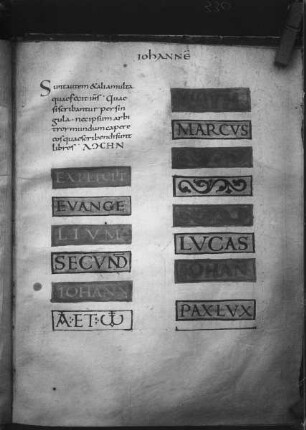 330
IOHANNĒ
Sunt autem & alia multa
quae fecit ihs Quae
si scribantur per sin
gula nec ipsum arbi
tror mundum capere
eos qui scribendi sunt
libros AMEN
EXPLICIT
EVANGE
LIUM
SECUND
IOHANN
A:ET:ω
MARCVS
LVCAS
IOHAN
PAX LVX